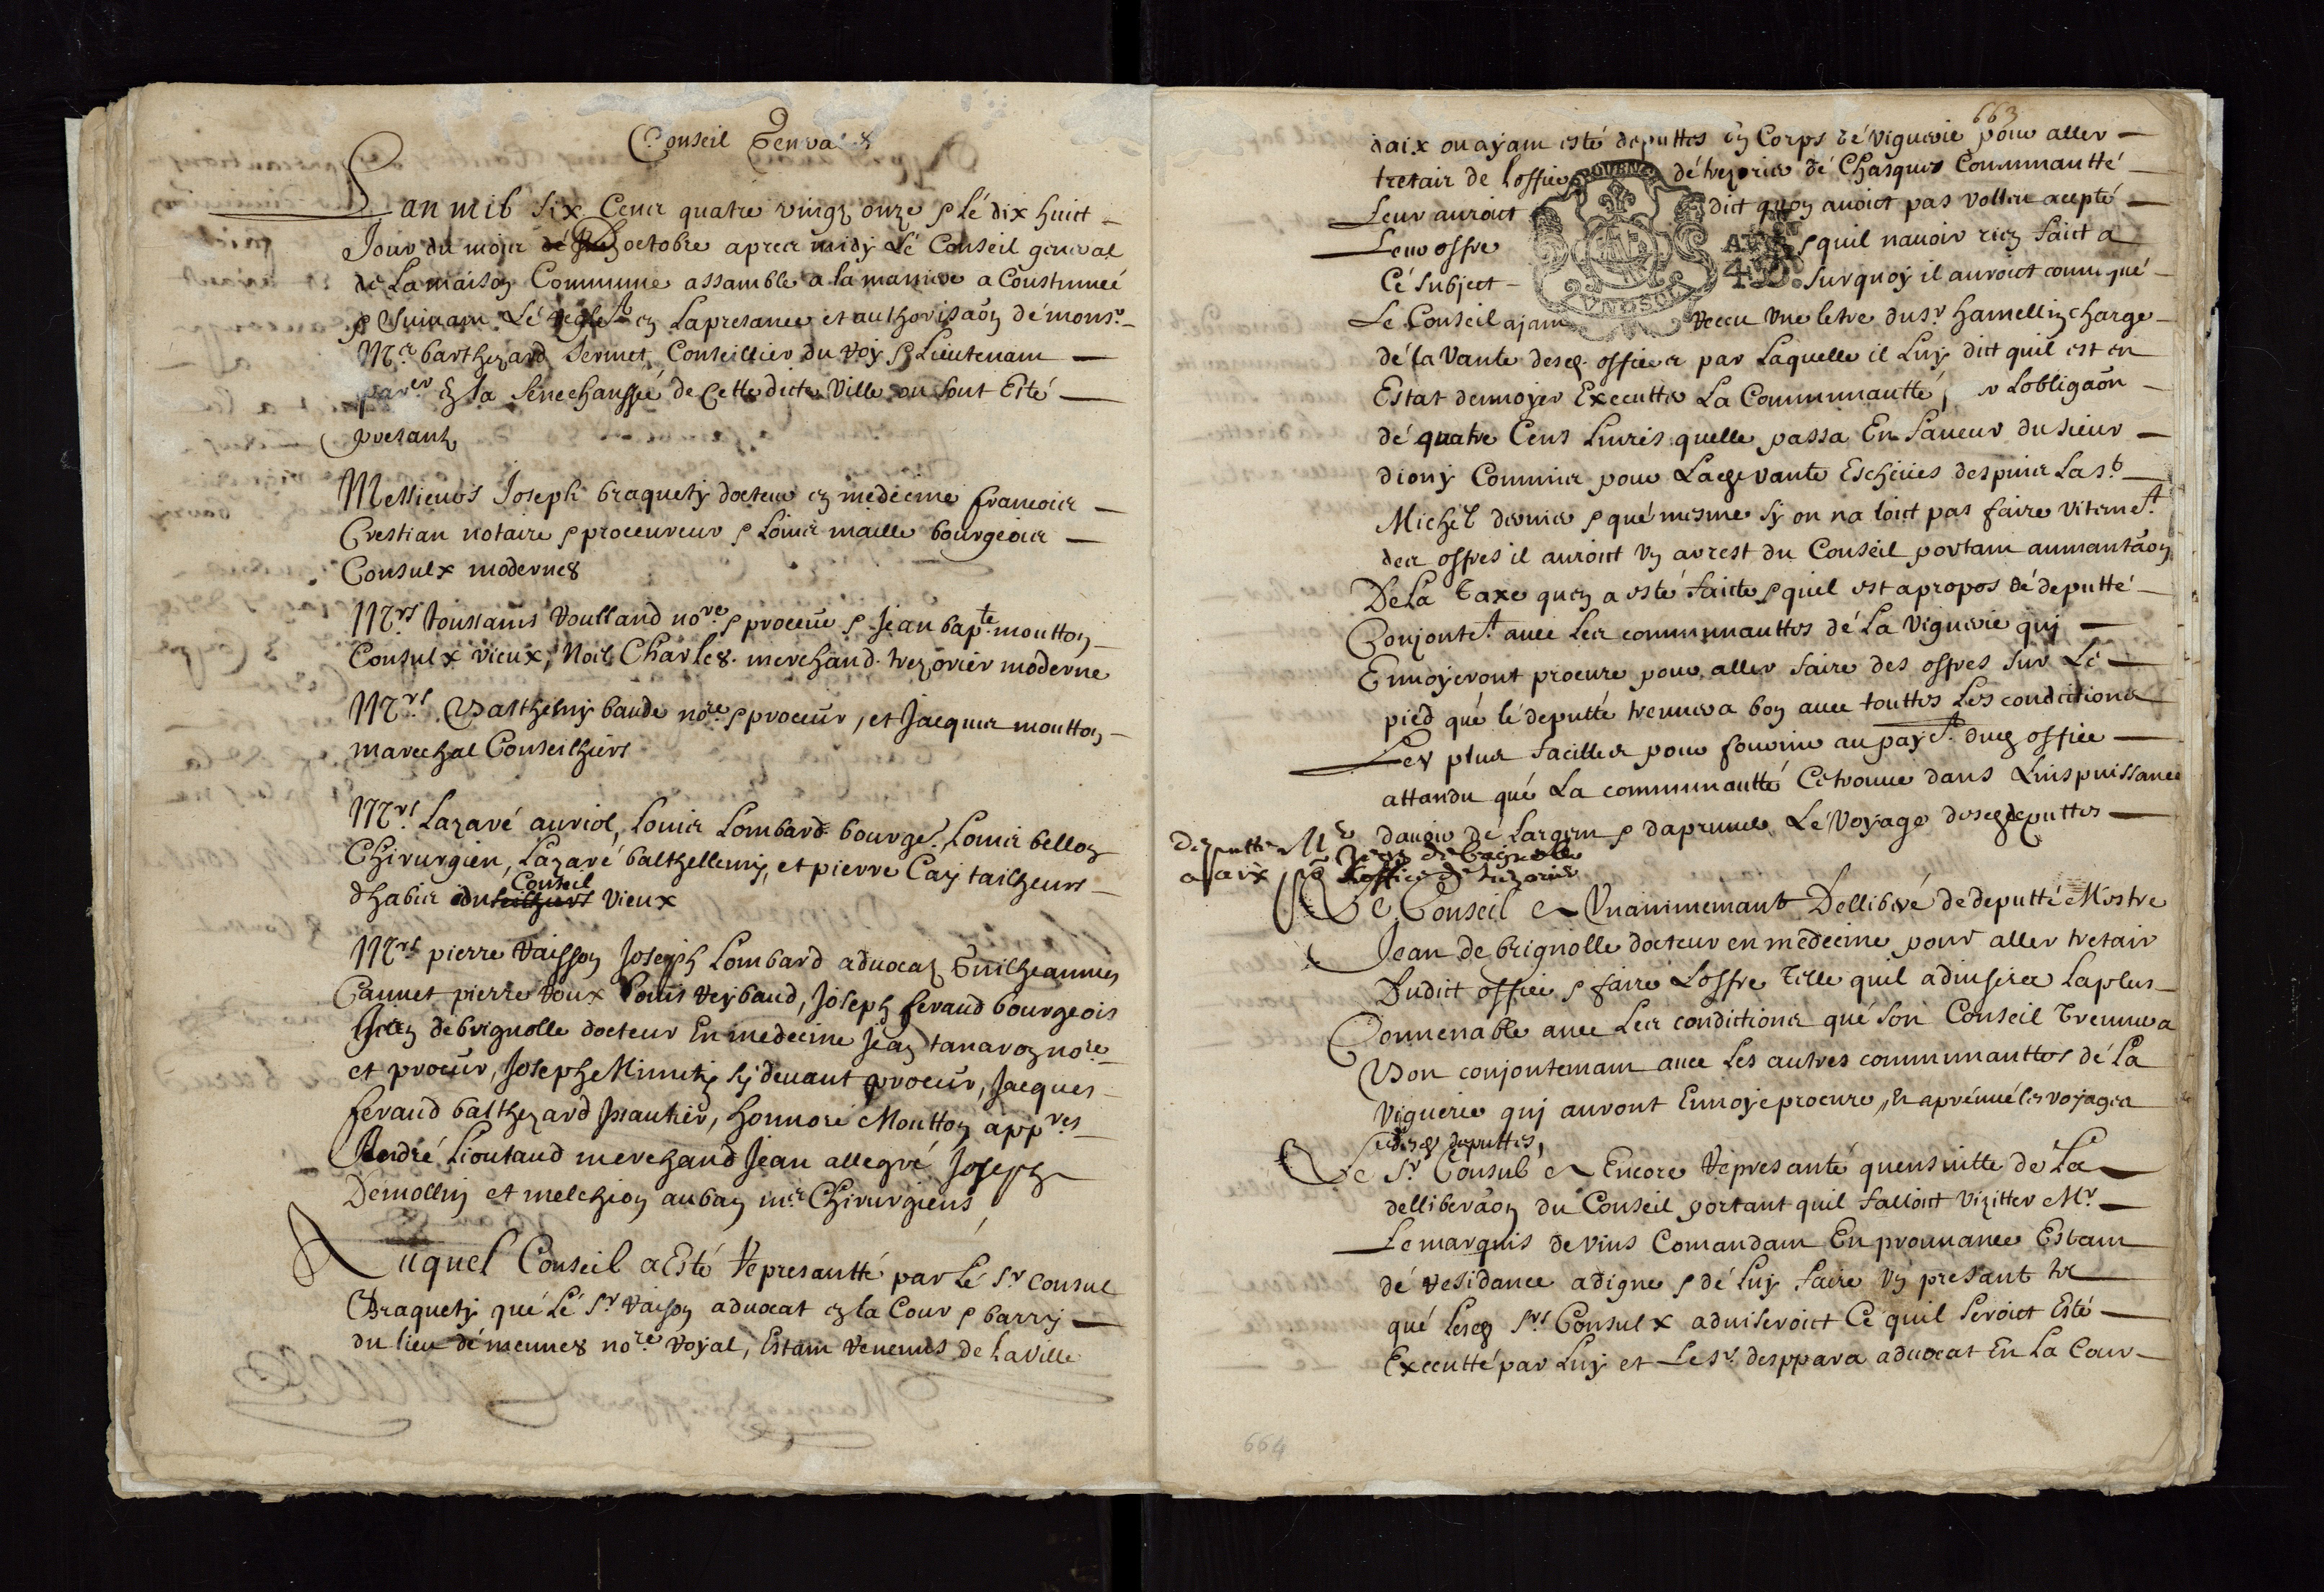 Conseil General
Lan mil six Cens quatre vingt onze & lé dix huict
Jour du mois octobre apres midy Le Conseil general
de La maison Commune assamblé a la maniere a Coustumeé
& Suivant Lé reglet en La presance et authorisaôn dé monsr
Mre barthezard Sermet Conseillier du Roy & Lieutenant
parer en la Senechaussée de Cette dicte Ville ou sont Esté
presants
Messieurs Joseph braquety docteur en medecine francois
Crestian notaire & proceureur & Louis maille bourgeois
Consulx modernes
Mrs toussains Voulland nore & proceur & Jean bapte moutton
Consulx vieux, Noil Charles merchand trezorier moderne
Mrs Balthesmy baude nore & proceur, et Jacques moutton
marechal Conseilhiers
Mrs Lazaré auriol, Louis Lombard bourge. Louis bellon
Chirurgien, Lazaré balthellemy, et pierre Cay tailheur
Conseil
dhabis vieux
Mrs pierre Vaisson Joseph Lombard advocat Guilheaumes
Cannet pierre Roux Louis Reybaud, Joseph feraud bourgeois
Jean debrignolle docteur En medecine Jean tanaron nore
et proceur, Joseph Minuty sy devant proceur, Jacques
feraud balthezard Jsautier, honnoré Moutton appres
André Lioutaud merchand Jean allegré Joseph
Demollin et melchion auban mes Chirurgiens
Auquel Conseil a Esté Represantté par Lé Sr Consul
Braquety qué Lé Sr Vaison advocat en la Cour & barry
du lieu démeunes nore Royal, Estant Revenus de La Ville
663
daix ou ayant esté deputtes en Corps dé Viguerie pour aller
tretair de Loffice dé trezorier dé Chasques Communautté
Leur auroict dict quon avoict pas vollu acepté
Leur offre & quil navoir rien faict a
Cé Subject Surquoy il auroict comuniqué
Le Conseil ajant Receu Une letre du Sr hamellin chargé
dé la Vante desd. offices par Laquelle il Luy dict quil est en
Estat denvoyer Executter La Communautté, pr Lobligaôn
dé quatre Cens Livres quelle passa En faveur du sieur
diony Commis pour Lad. Vante Escheües despuis La St
Michel dernier & qué mesme sy on na loict pas faire Vitemet
des offres il auroict un arrest du Conseil portant aumantâon
De La taxe quen a esté faicte & quil est apropos dé deputté
Conjontet avec Les communauttes dé La Viguerie quj
Envoyeront procure pour aller faire des offres sur Lé
pied qué lé deputté treuvera bon avec touttes Les condictions
Les plus facilles pour fournir au payt. dud office
attandu qué La communautté Cé trouve dans Linspuissance
davoir dé Largent & daprouver Lé Voyage desd deputtes
Depputter Mr Jean de brignolle
a aix pr loffice de trezorier
Le Conseil a Unanimemant Delliberé de deputté Mestre
Jean de brignolle docteur en medecine pour aller tretair
Dudict office & faire Loffre telle quil advisera La plus
Convenable avec Les condictions qué Son Conseil treuvera
Bon conjontemant avec Les autres communauttes dé La
Viguerie quj auront Envoyé procure, Et aprouué les voyages
desd deputtes,
Le Sr Consul a Encore Represanté quensuitte de La
delliberâon du Conseil portant quil falloict Vizitter Mr
Le marquis de Vins Comandant En prouvance Estant
dé residance a digne & dé Luy faire Un presant tel
qué Lesd Srs Consulx adviseroict Cé quil Seroict Esté
Executté par Luy et Le Sr desppara advocat En La Cour
664